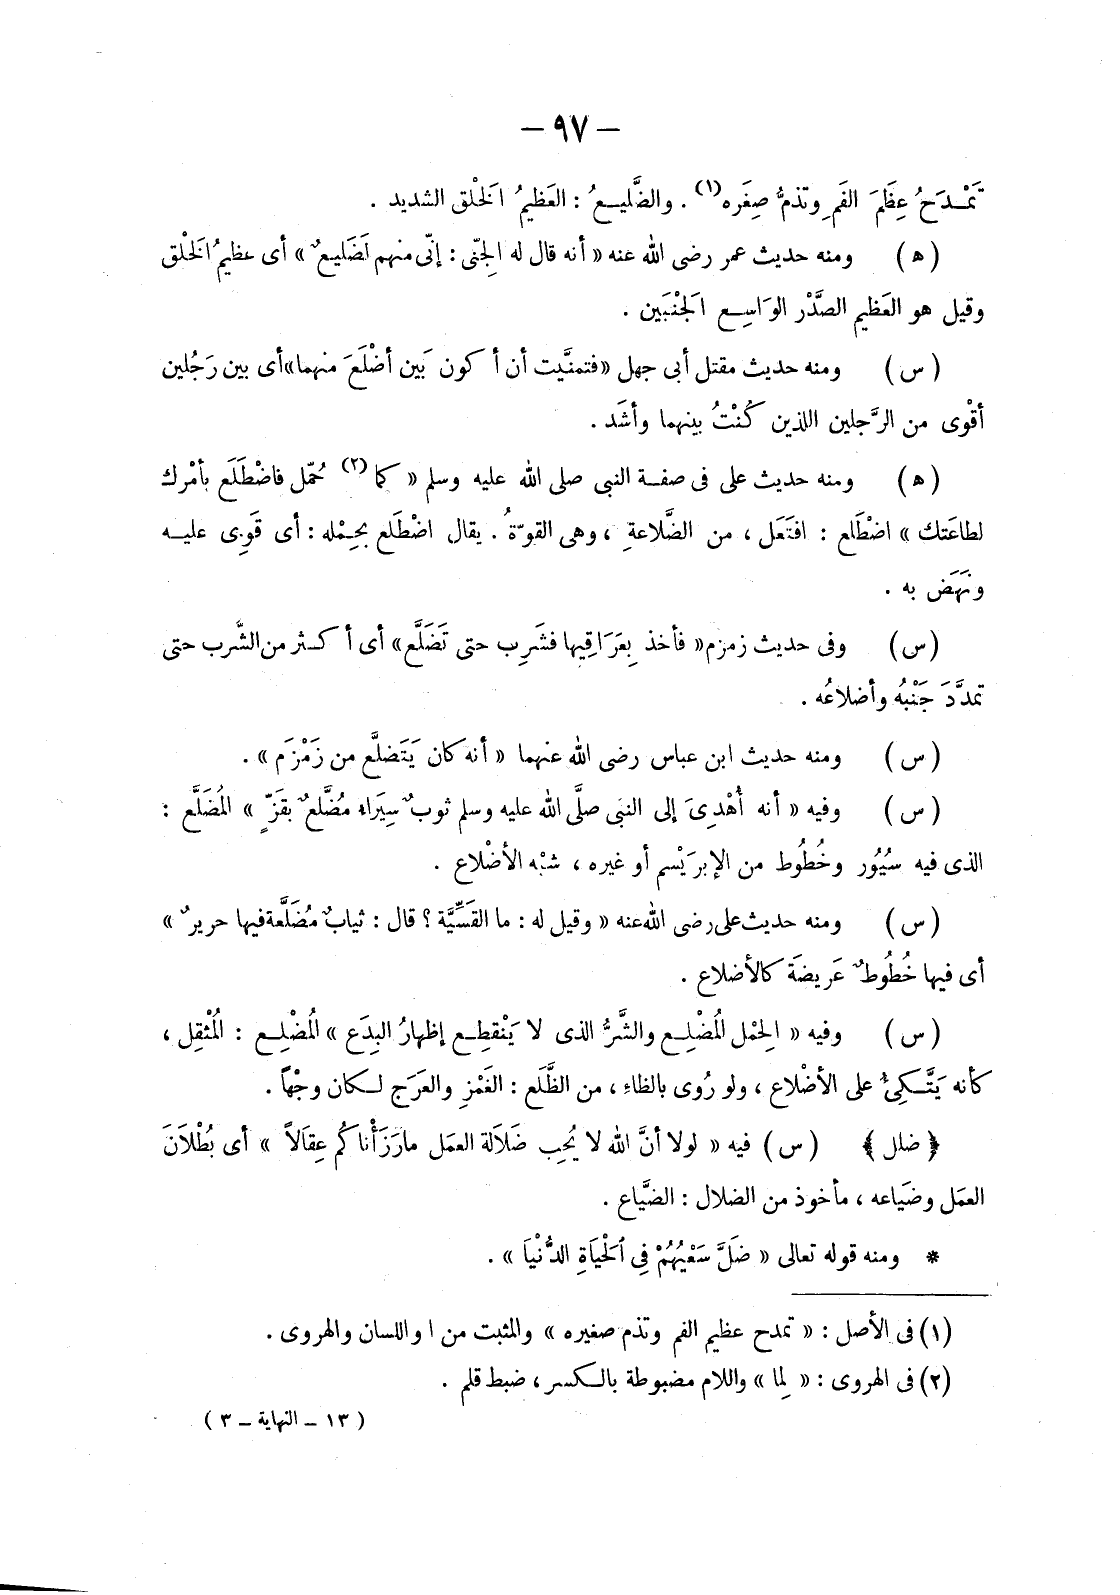 — ٩٧ —
تَمْـدَحُ عِظَمَ الفَمِ وتذمُّ صِغَره(١) . والضَّليـعُ : العَظيمُ الَخلْق الشديد .
( ھ ) ومنه حديث عمر رضى الله عنه « أنه قال له الِجنّى : إنّى منهم لَضَليعٌ » أى عظيمُ الَخلْق
وقيل هو العَظيم الصَّدْر الوَاسِـع الَجنْبَين .
( س ) ومنه حديث مقتل أبى جهل « فتمنَّيت أن أكون بَين أضْلَعَ منهما » أى بين رَجُلين
أقْوى من الرَّجلين اللذين كُنْتُ بينهما وأشَد .
( ھ ) ومنه حديث على فى صفـة النبى صلى الله عليه وسلم « كما(٢) حُمّل فاضْطَلَع بأمْرك
لطاعَتك » اضْطَلع : افتَعَل ، من الضَّلاعةِ ، وهى القوّةُ . يقال اضْطَلع بحِـمْله : أى قَوِى عليـه
ونَهَض به .
( س ) وفى حديث زمزم « فأخذ بِعَرَاقِيها فشَرِب حتى تَضَلَّع » أى أكـثر من الشُّرب حتى
تمدَّدَ جَنْبُه وأضلاعُه .
( س ) ومنه حديث ابن عباس رضى الله عنهما « أنه كان يَتَضلَّع من زَمْزَم » .
( س ) وفيه « أنه أُهْدِىَ إلى النبى صلَّى الله عليه وسلم ثوبٌ سِيَراء مُضَّلعٌ بقَزّ » المُضَلَّع :
الذى فيه سُيُور وخُطُوط من الإبرَيْسم أو غيره ، شبْه الأضْلاع .
( س ) ومنه حديث على رضى الله عنه « وقيل له : ما القَسِّيَّة ؟ قال : ثيابٌ مُضَلَّعة فيها حريرٌ »
أى فيها خُطُوطٌ عَريضَة كالأضلاع .
( س ) وفيه « الِحمْل المُضْلِـع والشَّرُّ الذى لا يَنْقطِـع إظهارُ البِدَع » المُضْلِـع : المُثْقِل ،
كأنه يَتَّـكِئُ على الأضْلاع ، ولو رُوى بالظاء ، من الظَّلَع : الغَمْزِ والعَرَج لـكان وجْهاً .
﴿ ضلل ﴾ ( س ) فيه « لولا أنَّ الله لا يُحِب ضَلاَلة العمَل مارَزَأْناكُم عِقالاً » أى بُطْلاَنَ
العمَل وضَياعه ، مأخوذ من الضلال : الضَّياع .
* ومنه قوله تعالى « ضَلَّ سَعْيُهُمْ فِى ٱلْحَيَاةِ الدُّنْيَا » .
(١) فى الأصل : « تمدح عظيم الفم وتذم صغيره » والمثبت من ا واللسان والهروى .
(٢) فى الهروى : « لِما » واللام مضبوطة بالـكسر ، ضبط قلم .
( ١٣ ــ النهاية ــ ٣ )